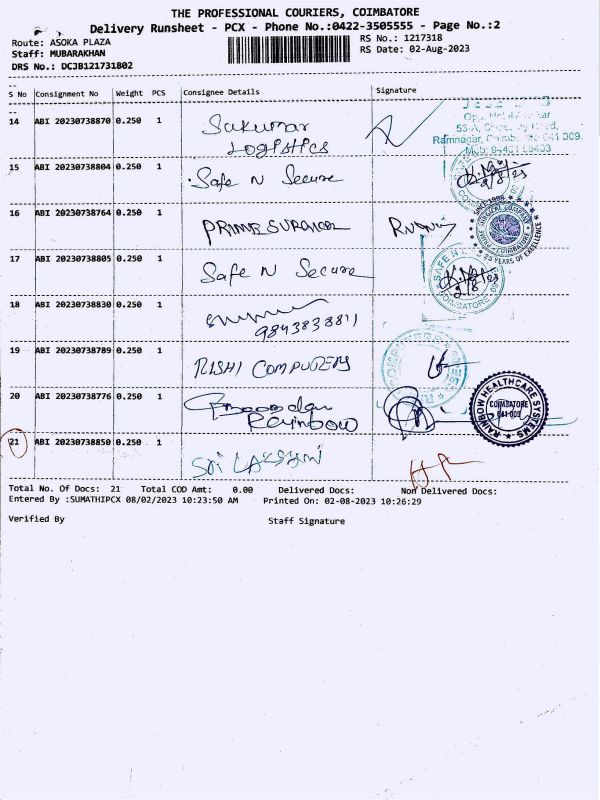 THE PROFESSIONAL COURIERS, COIMBATORE
Delivery Runsheet - PCX - Phone No.:0422-3505555 - Page No.:2
Route: ASOKA PLAZA
RS No.: 1217318
Staff: MUBARAKHAN
RS Date: 02-Aug-2023
DRS No.: DCJB121731802
S No Consignment No Weight PCS Consignee Details Signature
14 ABI 20230738870 0.250 1 Sukumar
Logistics
53-A,
Ramnagar,
15 ABI 20230738804 0.250 1 Safe N Secure
2/8/23
16 ABI 20230738764 0.250 1 PRIME SURGICAL
SINCE 1998
COIMBATORE
25 YEARS OF EXCELLENCE
17 ABI 20230738805 0.250 1 Safe N Secure
SAFE N
COIMBATORE
2/8/23
18 ABI 20230738830 0.250 1
9843838811
19 ABI 20230738789 0.250 1 RISHI COMPUTERS
COMPUTERS
20 ABI 20230738776 0.250 1
Rainbow
RAINBOW HEALTHCARE SYSTEMS
COIMBATORE
641 009
21 ABI 20230738850 0.250 1 Sri Lakshmi
Total No. Of Docs: 21 Total COD Amt: 0.00 Delivered Docs: Non Delivered Docs:
Entered By :SUMATHIPCX 08/02/2023 10:23:50 AM Printed On: 02-08-2023 10:26:29
Verified By Staff Signature